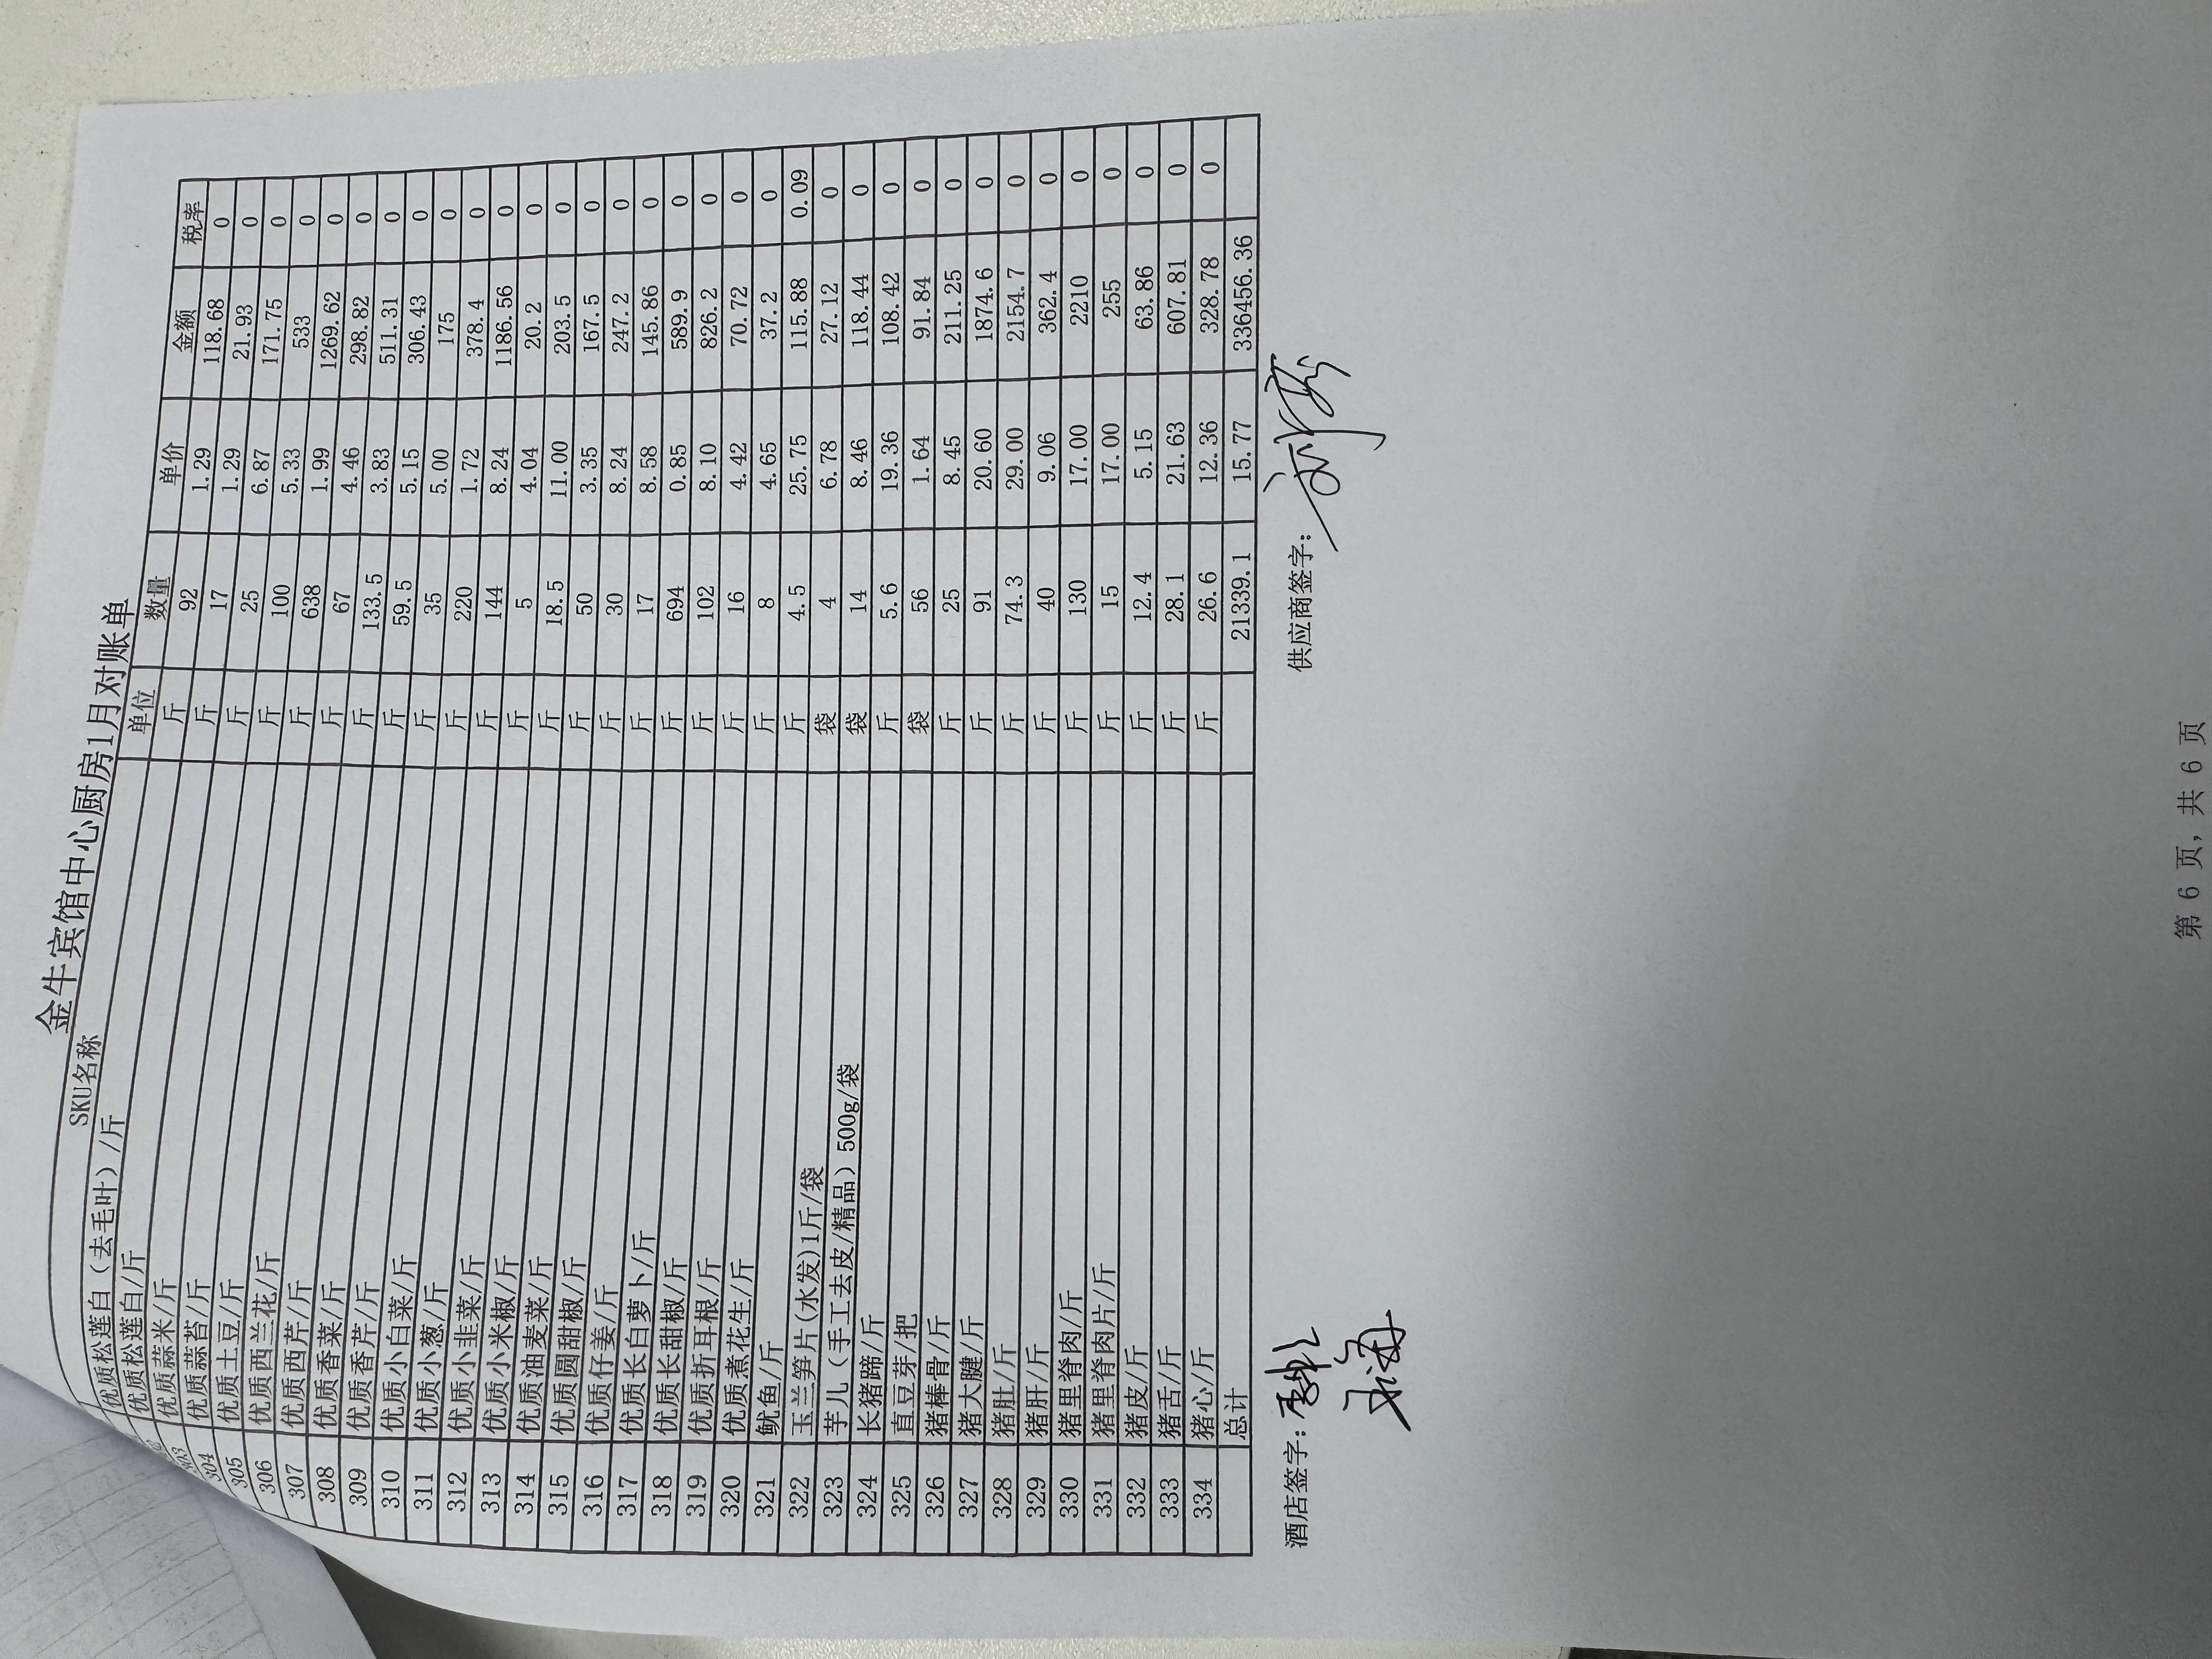 金牛宾馆中心厨房1月对账单
SKU名称 单位 数量 单价 金额 税率
优质松莲白（去毛叶）/斤 斤 92 1.29 118.68 0
优质松莲白/斤 斤 17 1.29 21.93 0
303 优质蒜米/斤 斤 25 6.87 171.75 0
304 优质蒜苔/斤 斤 100 5.33 533 0
305 优质土豆/斤 斤 638 1.99 1269.62 0
306 优质西兰花/斤 斤 67 4.46 298.82 0
307 优质西芹/斤 斤 133.5 3.83 511.31 0
308 优质香菜/斤 斤 59.5 5.15 306.43 0
309 优质香芹/斤 斤 35 5.00 175 0
310 优质小白菜/斤 斤 220 1.72 378.4 0
311 优质小葱/斤 斤 144 8.24 1186.56 0
312 优质小韭菜/斤 斤 5 4.04 20.2 0
313 优质小米椒/斤 斤 18.5 11.00 203.5 0
314 优质油麦菜/斤 斤 50 3.35 167.5 0
315 优质圆甜椒/斤 斤 30 8.24 247.2 0
316 优质仔姜/斤 斤 17 8.58 145.86 0
317 优质长白萝卜/斤 斤 694 0.85 589.9 0
318 优质长甜椒/斤 斤 102 8.10 826.2 0
319 优质折耳根/斤 斤 16 4.42 70.72 0
320 优质煮花生/斤 斤 8 4.65 37.2 0
321 鱿鱼/斤 斤 4.5 25.75 115.88 0.09
322 玉兰笋片(水发)1斤/袋 袋 4 6.78 27.12 0
323 芋儿（手工去皮/精品）500g/袋 袋 14 8.46 118.44 0
324 长猪蹄/斤 斤 5.6 19.36 108.42 0
325 直豆芽/把 袋 56 1.64 91.84 0
326 猪棒骨/斤 斤 25 8.45 211.25 0
327 猪大腱/斤 斤 91 20.60 1874.6 0
328 猪肚/斤 斤 74.3 29.00 2154.7 0
329 猪肝/斤 斤 40 9.06 362.4 0
330 猪里脊肉/斤 斤 130 17.00 2210 0
331 猪里脊肉片/斤 斤 15 17.00 255 0
332 猪皮/斤 斤 12.4 5.15 63.86 0
333 猪舌/斤 斤 28.1 21.63 607.81 0
334 猪心/斤 斤 26.6 12.36 328.78 0
总计 21339.1 15.77 336456.36
酒店签字： 供应商签字：
第 6 页，共 6 页